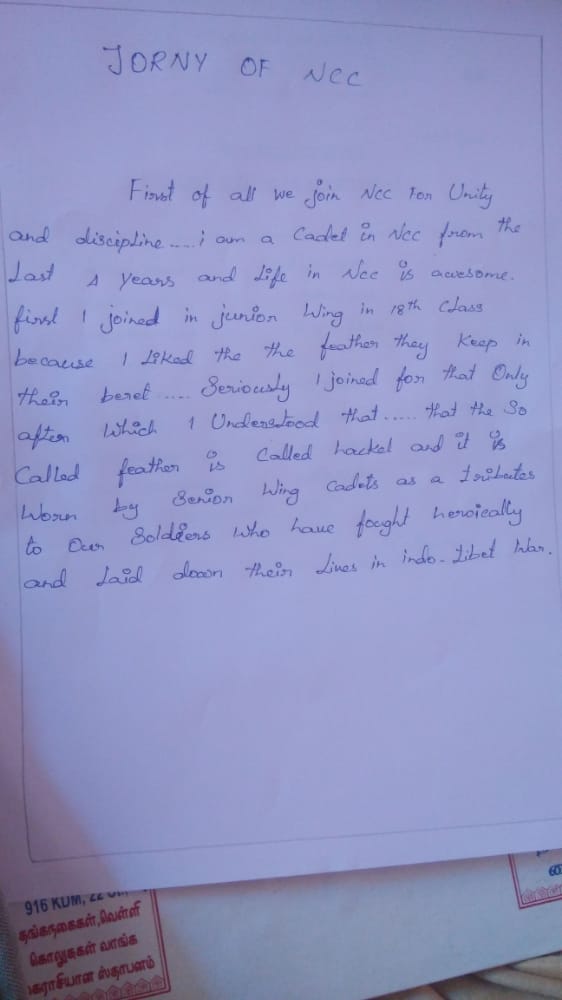 JORNY OF NCC
First of all we join Ncc For Unity
and discipline..... i am a Cadet in Ncc from the
Last 4 years and Life in Ncc is awesome.
first I joined in junior Wing in 18th Class
because I Liked the the feather they Keep in
their beret .... Seriously I joined for that Only
after Which I Understood that ..... that the So
Called feather is Called hackel and it is
Worn by Senior Wing Cadets as a tributes
to Our Soldiers Who have fought heroically
and Laid down their Lives in indo-Tibet War.
916 KDM, 22
தங்கநகைகள், வெள்ளி
கொலுசுகள் வாங்க
ஸ்தாபனம்